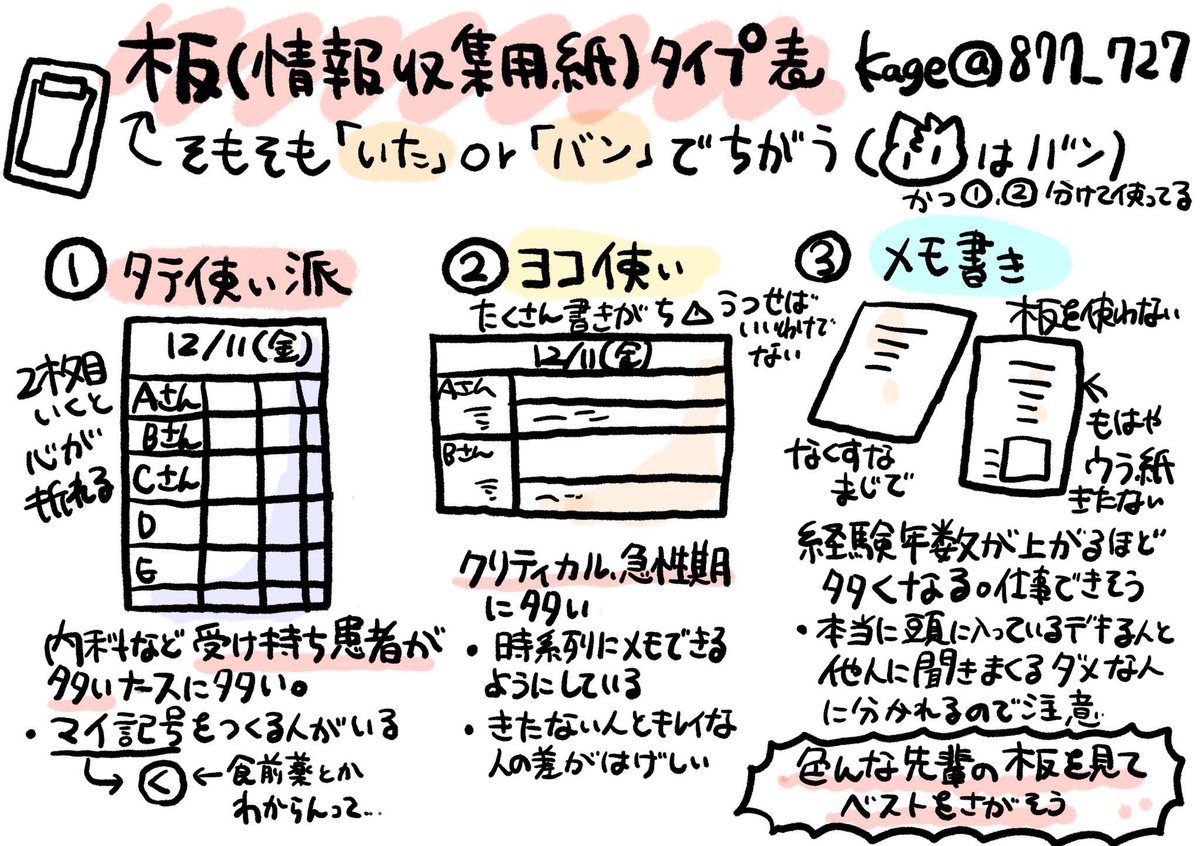 板(情報収集用紙)タイプ表 kage@877_727
そもそも「いた」or「バン」でちがう(はバン)
かつ①、②分けて使ってる
① タテ使い派
2枚目
いくと
心が
折れる
12/11(金)
Aさん
Bさん
Cさん
D
E
内科など受け持ち患者が
多いナースに多い。
・マイ記号をつくる人がいる
く ← 食前薬とか
わからんって…
② ヨコ使い
たくさん書きがち⚠うつせば
いいわけで
ない
12/11(金)
Aさん
Bさん
クリティカル、急性期
に多い
・時系列にメモできる
ようにしている
・きたない人とキレイな
人の差がはげしい
③ メモ書き
板を使わない
なくすな
まじで
もはや
ウラ紙
きたない
経験年数が上がるほど
多くなる。仕事できそう
・本当に頭に入っているデキる人と
他人に聞きまくるダメな人
に分かれるので注意
色んな先輩の板を見て
ベストをさがそう